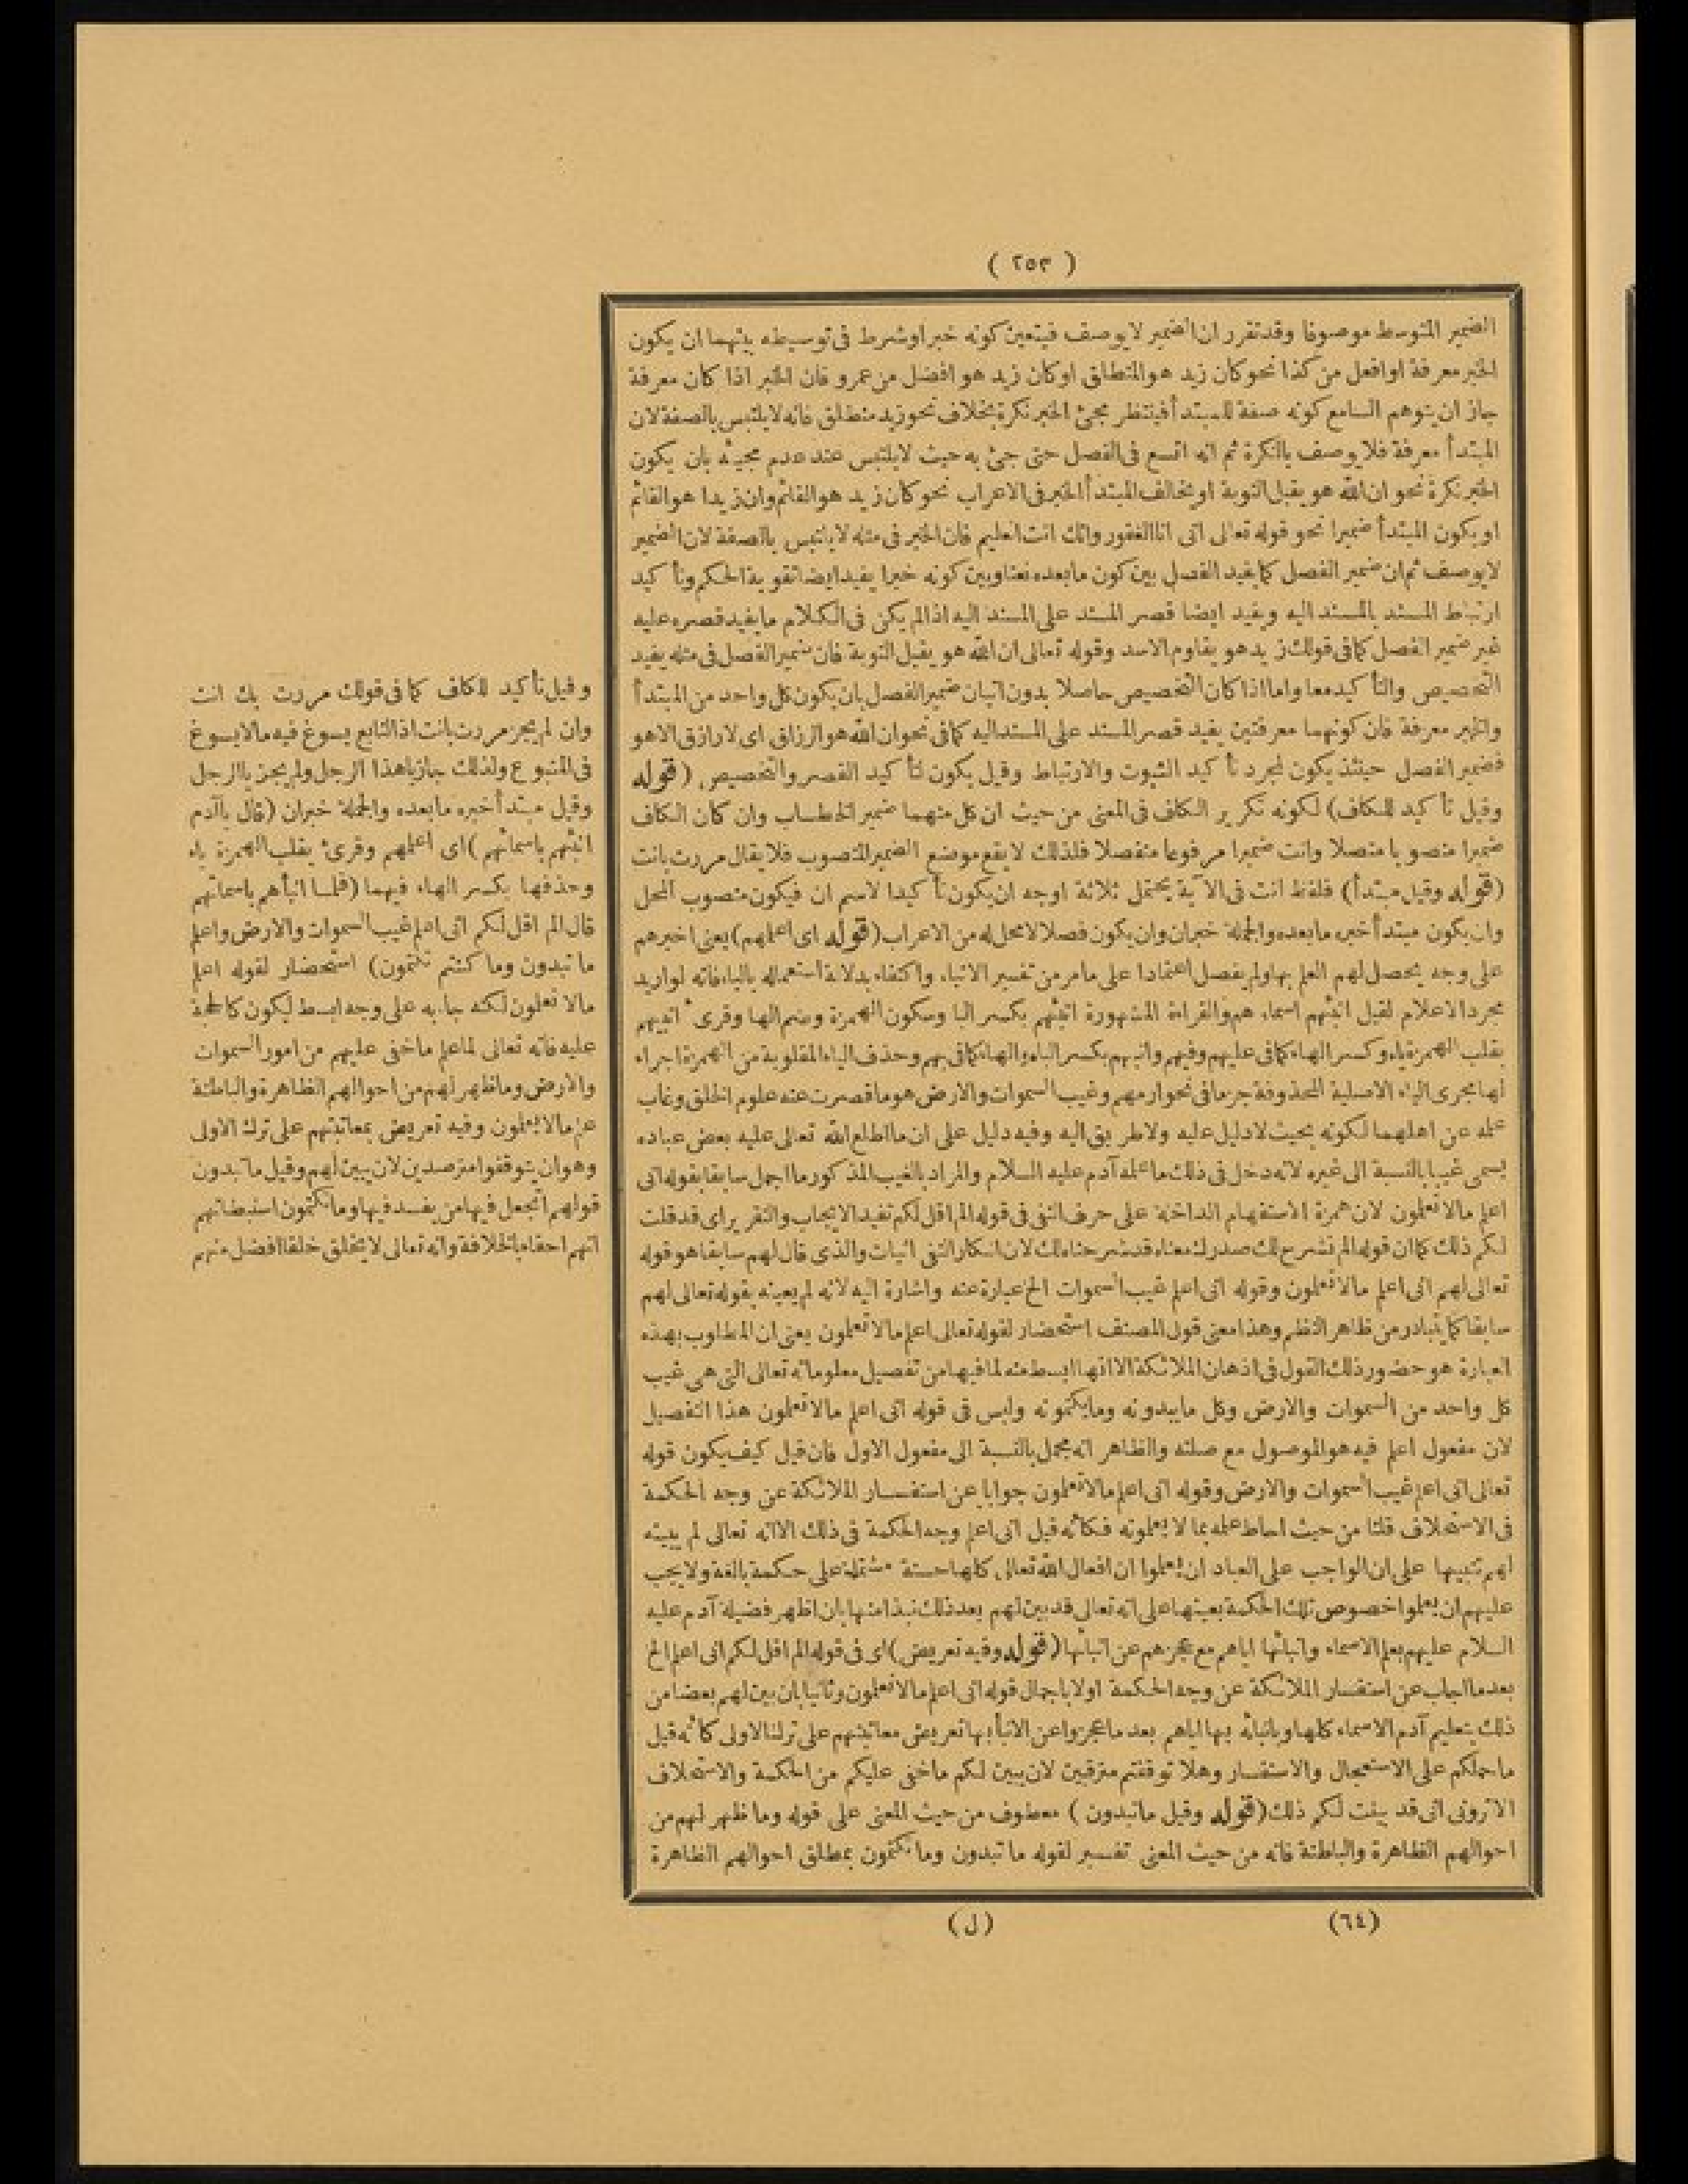 ( ٢٥٣ )
الضمير المتوسط موصوفا وقد تقرر ان الضمير لا يوصف فيتعين كونه خبرا وشرط فى توسيطه بينهما ان يكون
الخبر معرفة او افعل من كذا نحو كان زيد هو المنطلق او كان زيد هو افضل من عمرو فان الخبر اذا كان معرفة
جاز ان يتوهم السامع كونه صفة للمبتدأ فينتظر مجئ الخبر نكرة بخلاف نحو زيد منطلق فانه لا يلتبس بالصفة لان
المبتدأ معرفة فلا يوصف بالنكرة ثم انه اتسع فى الفصل حتى جئ به حيث لا يلتبس عند عدم مجيئه بان يكون
الخبر نكرة نحو ان الله هو يقبل التوبة او يخالف المبتدأ الخبر فى الاعراب نحو كان زيد هو القائم وان زيدا هو القائم
او يكون المبتدأ ضميرا نحو قوله تعالى انى انا الغفور وانك انت العليم فان الخبر فى مثله لا يلتبس بالصفة لان الضمير
لا يوصف ثم ان ضمير الفصل كما يفيد الفصل بين كون ما بعده نعتا وبين كونه خبرا يفيد ايضا تقوية الحكم وتأكيد
ارتباط المسند بالمسند اليه ويفيد ايضا قصر المسند على المسند اليه اذا لم يكن فى الكلام ما يفيد قصره عليه
غير ضمير الفصل كما فى قولك زيد هو يقاوم الاسد وقوله تعالى ان الله هو يقبل التوبة فان ضمير الفصل فى مثله يفيد
التخصيص والتأكيد معا واما اذا كان التخصيص حاصلا بدون اتيان ضمير الفصل بان يكون كل واحد من المبتدأ
والخبر معرفة فان كونهما معرفتين يفيد قصر المسند على المسند اليه كما فى نحو ان الله هو الرزاق اى لا رازق الا هو
فضمير الفصل حينئذ يكون لمجرد تأكيد الثبوت والارتباط وقيل يكون لتأكيد القصر والتخصيص (قوله
وقيل تأكيد للكاف) لكونه تكرير الكاف فى المعنى من حيث ان كل منهما ضمير الخطاب وان كان الكاف
ضميرا منصوبا متصلا وانت ضميرا مرفوعا منفصلا فلذلك لا يقع موضع الضمير المنصوب فلا يقال مررت بانت
(قوله وقيل مبتدأ) فلفظ انت فى الآية يحتمل ثلاثة اوجه ان يكون تأكيدا لاسم ان فيكون منصوب المحل
وان يكون مبتدأ خبره ما بعده والجملة خبر ان وان يكون فصلا لا محل له من الاعراب (قوله اى اعلمهم) يعنى اخبرهم
على وجه يحصل لهم العلم بها ولم يفصل اعتمادا على ما مر من تفسير الانباء واكتفاء بدلالة استعماله بالباء فانه لو اريد
مجرد الاعلام لقيل انبئهم اسماء هم والقراءة المشهورة انبئهم بكسر البا وسكون الهمزة وضم الها وقرئ انبيهم
بقلب الهمزة ياء وكسر الهاء كما فى عليهم وفيهم وانبهم بكسر الباء والهاء كما فى بهم وحذف الياء المقلوبة من الهمزة اجراء
لها مجرى الياء الاصلية المحذوفة جزما فى نحو ارمهم وغيب السموات والارض هو ما قصرت عنه علوم الخلق وغاب
علمه عن اهلهما لكونه بحيث لا دليل عليه ولا طريق اليه وفيه دليل على ان ما اطلع الله تعالى عليه بعض عباده
يسمى غيبا بالنسبة الى غيره لانه دخل فى ذلك ما علمه آدم عليه السلام والمراد بالغيب المذكور ما اجمل سابقا بقوله انى
اعلم ما لا تعلمون لان همزة الاستفهام الداخلة على حرف النفى فى قوله الم اقل لكم تفيد الايجاب والتقرير اى قد قلت
لكم ذلك كما ان قوله الم نشرح لك صدرك معناه قد شرحناه لك لان انكار النفى اثبات والذى قال لهم سابقا هو قوله
تعالى لهم انى اعلم ما لا تعلمون وقوله انى اعلم غيب السموات الخ عبارة عنه واشارة اليه لانه لم يعينه بقوله تعالى لهم
سابقا كما يتبادر من ظاهر النظم وهذا معنى قول المصنف استحضار لقوله تعالى اعلم ما لا تعلمون يعنى ان المطلوب بهذه
العبارة هو حضور ذلك القول فى اذهان الملائكة الا انها ابسط منه لما فيها من تفصيل معلوماته تعالى التى هى غيب
كل واحد من السموات والارض وكل ما يبدونه وما يكتمونه وليس فى قوله انى اعلم ما لا تعلمون هذا التفصيل
لان مفعول اعلم فيه هو الموصول مع صلته والظاهر انه مجمل بالنسبة الى مفعول الاول فان قيل كيف يكون قوله
تعالى انى اعلم غيب السموات والارض وقوله انى اعلم ما لا تعلمون جوابا عن استفسار الملائكة عن وجه الحكمة
فى الاستخلاف قلنا من حيث احاط علمه بما لا يعلمونه فكأنه قيل انى اعلم وجه الحكمة فى ذلك الا انه تعالى لم يبينه
لهم تنبيها على ان الواجب على العباد ان يعلموا ان افعال الله تعالى كلها حسنة مشتملة على حكمة بالغة ولا يجب
عليهم ان يعلموا خصوص تلك الحكمة بعينها على انه تعالى قد بين لهم بعد ذلك نبذا منها بان اظهر فضيلة آدم عليه
السلام عليهم بعلم الاسماء وانبائها اياهم مع عجزهم عن انبائها (قوله وفيه تعريض) اى فى قوله الم اقل لكم انى اعلم الخ
بعد ما اجاب عن استفسار الملائكة عن وجه الحكمة اولا باجمال قوله انى اعلم ما لا تعلمون وثانيا بان بين لهم بعضا من
ذلك بتعليم آدم الاسماء كلها وبانبائه بها اياهم بعد ما عجزوا عن الانبأ بها تعريض معاتبتهم على ترك الاولى كأنه قيل
ما حملكم على الاستعجال والاستفسار وهلا توقفتم مترقبين لان يبين لكم ما خفى عليكم من الحكمة والاستخلاف
الا ترونى انى قد بينت لكم ذلك (قوله وقيل ما تبدون ) معطوف من حيث المعنى على قوله وما ظهر لهم من
احوالهم الظاهرة والباطنة فانه من حيث المعنى تفسير لقوله ما تبدون وما تكتمون بمطلق احوالهم الظاهرة
وقيل تأكيد للكاف كما فى قولك مررت بك انت
وان لم يجز مررت بانت اذ التابع يسوغ فيه ما لا يسوغ
فى المتبوع ولذلك جاز يا هذا الرجل ولم يجز يا الرجل
وقيل مبتدأ خبره ما بعده والجملة خبر ان (قال يا آدم
انبئهم باسمائهم) اى اعلمهم وقرئ بقلب الهمزة ياء
وحذفها بكسر الهاء فيهما (فلما انبأهم باسمائهم
قال الم اقل لكم انى اعلم غيب السموات والارض واعلم
ما تبدون وما كنتم تكتمون) استحضار لقوله اعلم
ما لا تعلمون لكنه جاء به على وجه ابسط ليكون كالحجة
عليه فانه تعالى لما علم ما خفى عليهم من امور السموات
والارض وما ظهر لهم من احوالهم الظاهرة والباطنة
علم ما لا يعلمون وفيه تعريض بمعاتبتهم على ترك الاولى
وهو ان يتوقفوا مترصدين لان يبين لهم وقيل ما تبدون
قولهم اتجعل فيها من يفسد فيها وما تكتمون استبطانهم
انهم احقاء بالخلافة وانه تعالى لا يخلق خلقا افضل منهم
(٦٤)
(ل)